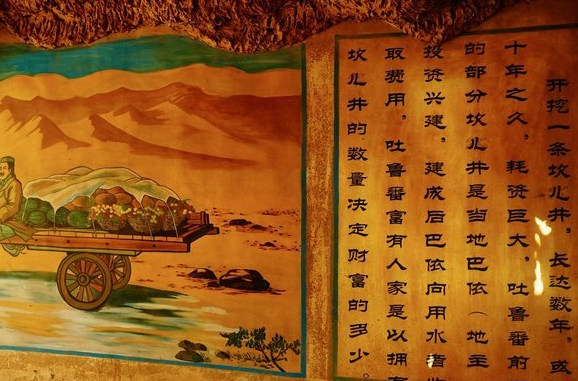 开挖一条坎儿井，长达数年，或
十年之久，耗资巨大，吐鲁番前
的部分坎儿井是当地巴依（地主
投资兴建，建成后巴依向用水者收
取费用，吐鲁番富有人家是以拥有
坎儿井的数量决定财富的多少。